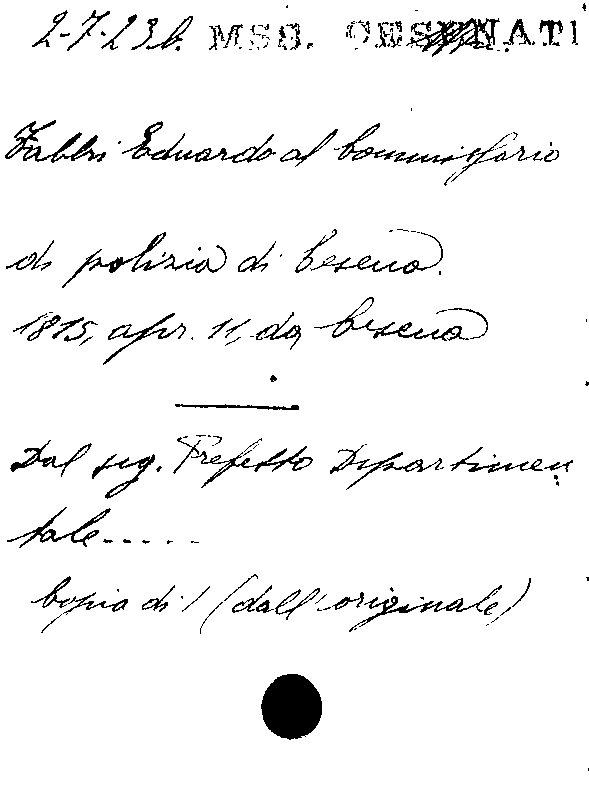 2-7-23 b. MSS. CESENATI
Fabbri Eduardo al Commissario
di polizia di Cesena.
1815, apr. 11, da Cesena
Dal sig. Prefetto Dipartimen
tale.....
Copia di / (dall'originale)